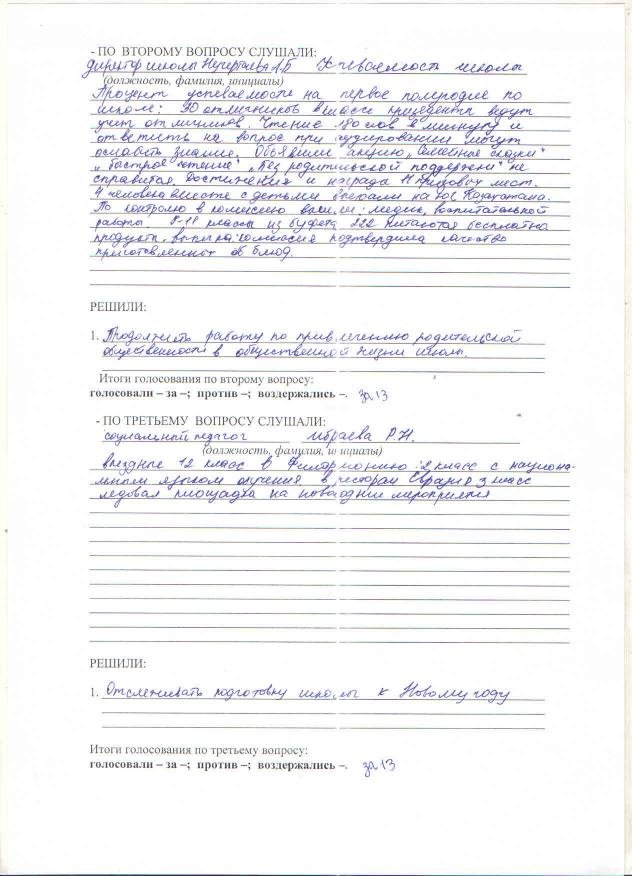 - ПО ВТОРОМУ ВОПРОСУ СЛУШАЛИ:
директор школы А.Б школы
(должность, фамилия, инициалы)
Процент успеваемости на первое полугодие по
школе: 30 отличников в классе ведут
учит отличников. Чтение 180 слов в минуту и
ответить на вопрос при аудировании могут
знание. Объявили акцию „Семейные сказки“
„Быстрое чтение“ „Без родительской поддержки“ не
справится. Достижения и награда 17 призовых мест.
4 человека вместе с детьми выехали на юг Казахстана.
По контролю в комиссию вошли: медик, воспитательной
работы. классы из буфета 222 питаются бесплатно
продукты, комиссия подтвердила качество
приготовленных блюд.
РЕШИЛИ:
1. Продолжить работу по привлечению родительской
общественности в общественной жизни школы.
Итоги голосования по второму вопросу:
голосовали – за –; против –; воздержались –. за 13
- ПО ТРЕТЬЕМУ ВОПРОСУ СЛУШАЛИ:
социальный педагог Ибраева Р.Н.
(должность, фамилия, инициалы)
12 класс в Филармонию 2 класс с национа-
льным языком обучения в ресторан Евразия 3 класс
ледовая площадка на новогодние мероприятия
РЕШИЛИ:
1. Отслеживать подготовку школы к Новому году
Итоги голосования по третьему вопросу:
голосовали – за –; против –; воздержались –. за 13